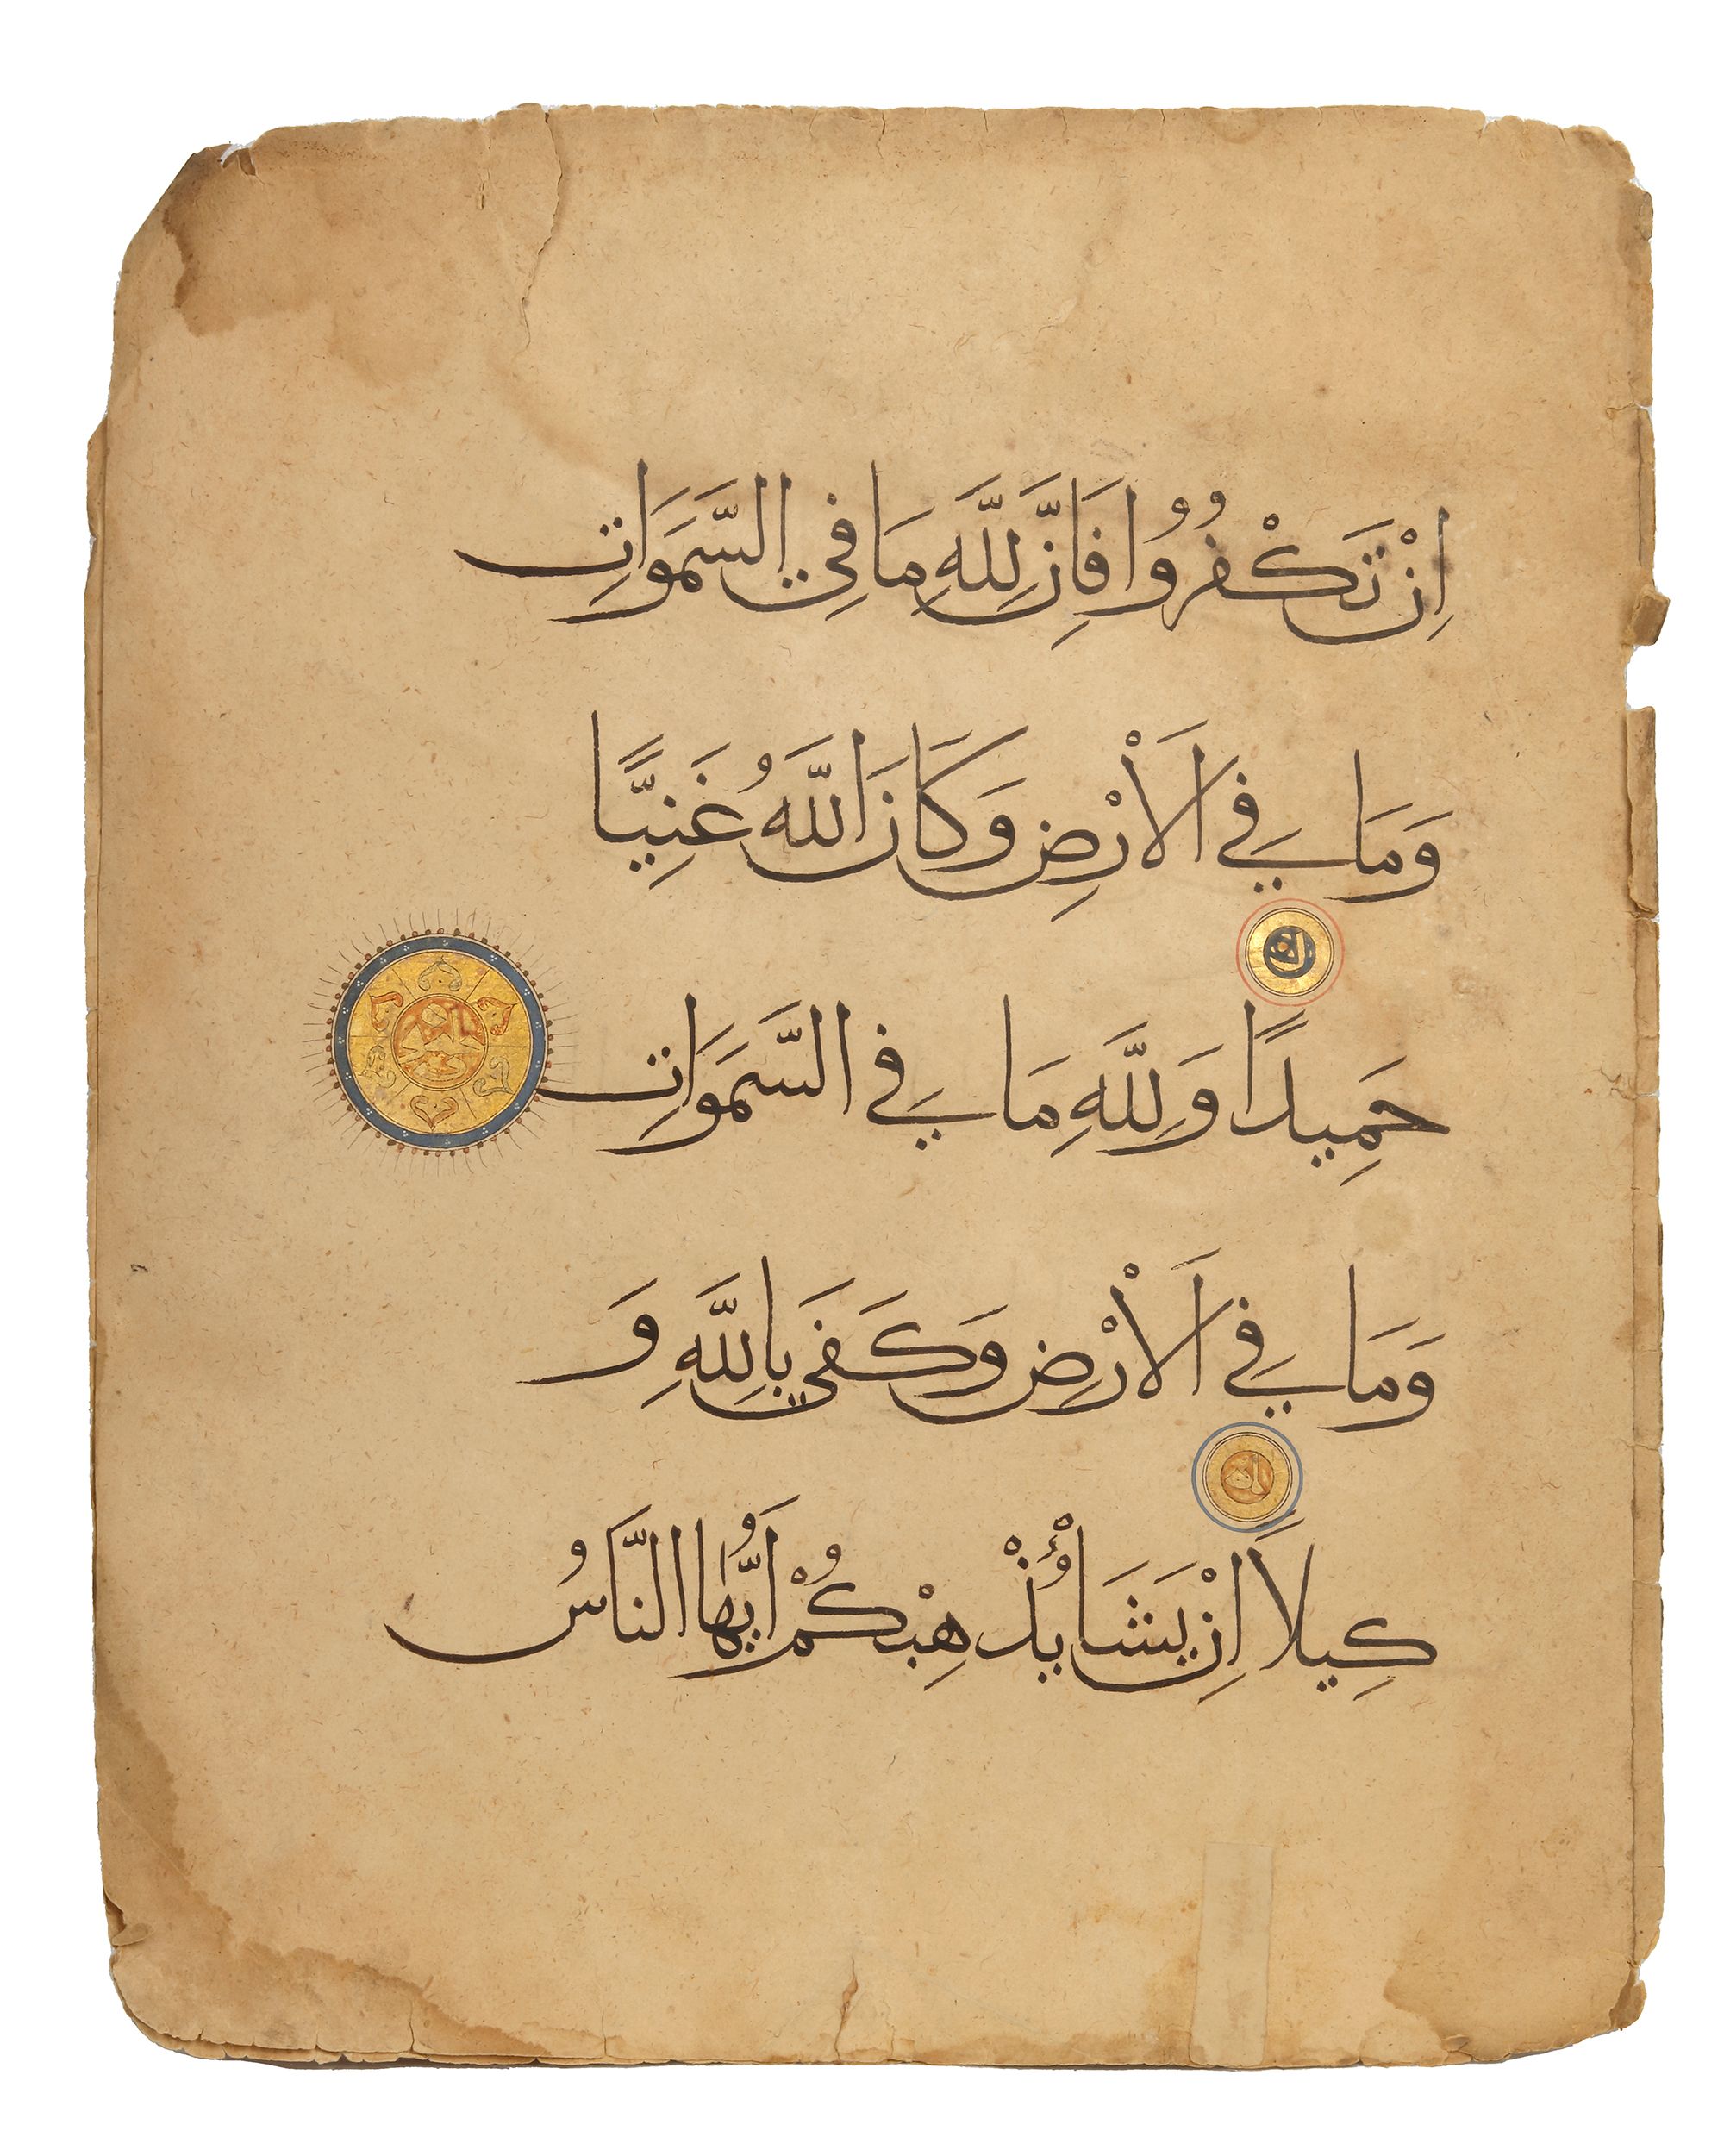 اِنْ تَكْفُرُوا فَاِنَّ لِلَّهِ مَا فِي السَّمَوَاتِ
وَمَا فِي الْاَرْضِ وَكَانَ اللَّهُ غَنِيًّا
حَمِيدًا وَلِلَّهِ مَا فِي السَّمَوَاتِ
وَمَا فِي الْاَرْضِ وَكَفَى بِاللَّهِ وَ
كِيلًا اِنْ يَشَأْ يُذْهِبْكُمْ اَيُّهَا النَّاسُ